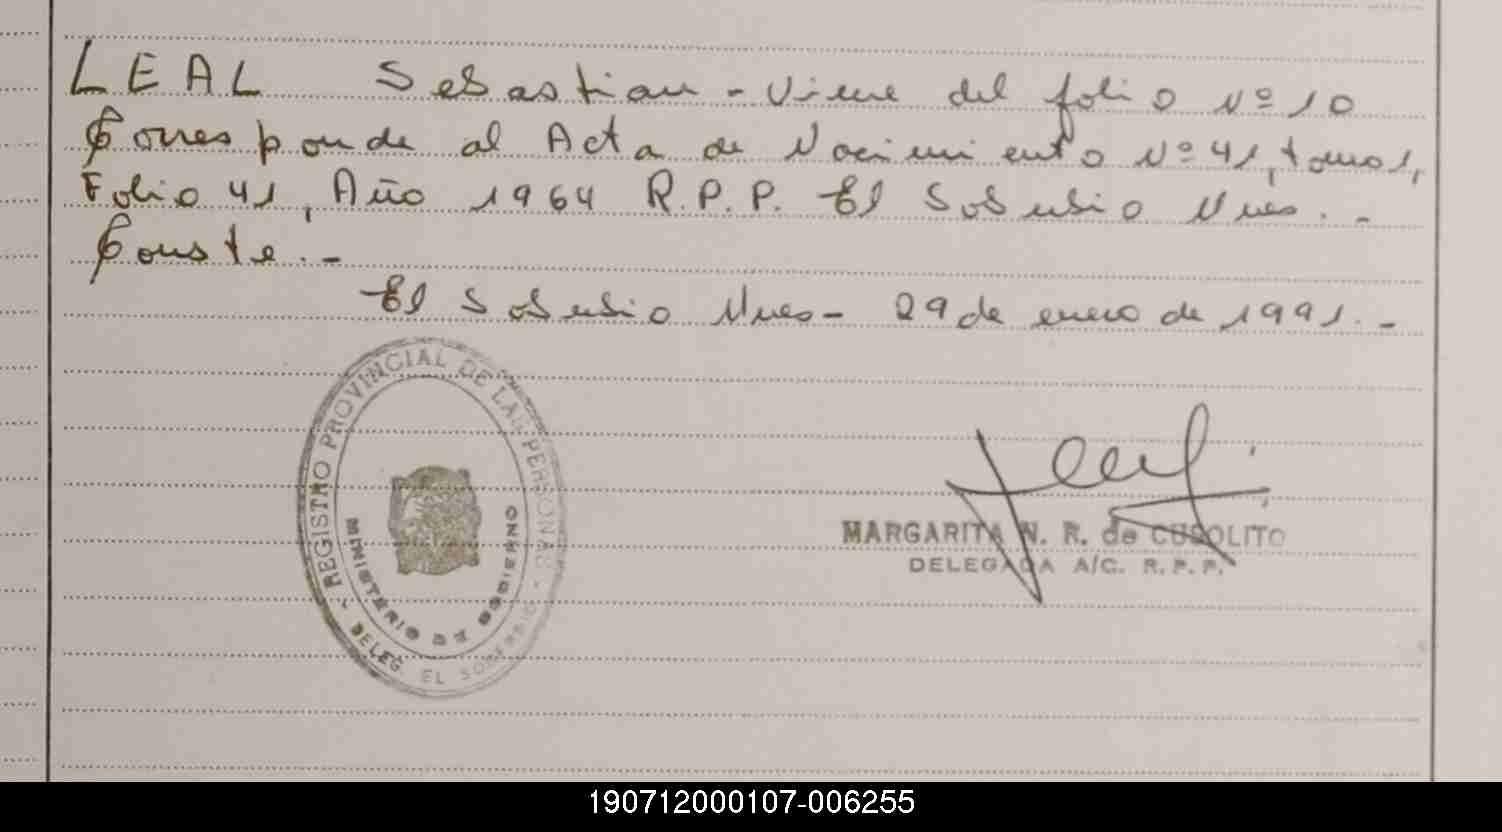 LEAL Sebastian - Viene del folio Nº 10
Corresponde al Acta de Nacimiento Nº 41, tomo 1,
Folio 41, Año 1964 R.P.P. El Soberbio Mnes. -
Conste. -
El Soberbio Mnes - 29 de enero de 1991. -
REGISTRO PROVINCIAL DE LAS PERSONAS
MINISTERIO DE GOBIERNO
- DELEG. EL SOBERBIO -
MARGARITA N. R. de CUSOLITO
DELEGADA A/C. R.P.P.
190712000107-006255